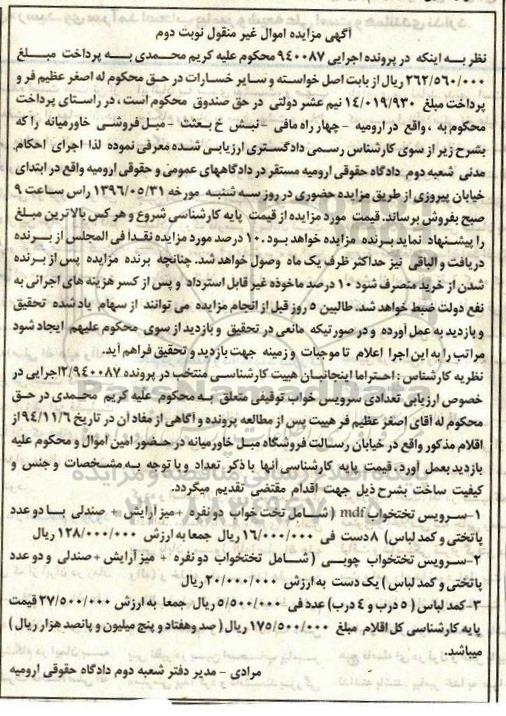 آگهی مزایده اموال غیر منقول نوبت دوم
نظر به اینکه در پرونده اجرایی ۹۴۰۰۸۷ محکوم علیه کریم محمدی به پرداخت مبلغ
۲۶۲/۵۶۰/۰۰۰ ریال از بابت اصل خواسته و سایر خسارات در حق محکوم له اصغر عظیم فر و
پرداخت مبلغ ۱۴/۰۱۹/۹۳۰ نیم عشر دولتی در حق صندوق محکوم است، در راستای پرداخت
محکوم به، واقع در ارومیه - چهار راه مافی - نبش خ بعثت - مبل فروشی خاورمیانه را که
بشرح زیر از سوی کارشناس رسمی دادگستری ارزیابی شده معرفی نموده لذا اجرای احکام
مدنی شعبه دوم دادگاه حقوقی ارومیه مستقر در دادگاههای عمومی و حقوقی ارومیه واقع در ابتدای
خیابان پیروزی از طریق مزایده حضوری در روز سه شنبه مورخه ۱۳۹۶/۰۵/۳۱ راس ساعت ۹
صبح بفروش برساند. قیمت مورد مزایده از قیمت پایه کارشناسی شروع و هر کس بالاترین مبلغ
را پیشنهاد نماید برنده مزایده خواهد بود. ۱۰ درصد مورد مزایده نقداً فی المجلس از برنده
دریافت و الباقی نیز حداکثر ظرف یک ماه وصول خواهد شد. چنانچه برنده مزایده پس از برنده
شدن از خرید منصرف شود ۱۰ درصد ماخوذه غیر قابل استرداد و پس از کسر هزینه های اجرائی به
نفع دولت ضبط خواهد شد. طالبین ۵ روز قبل از انجام مزایده می توانند از سهام یاد شده تحقیق
و بازدید به عمل آورده و در صورتیکه مانعی در تحقیق و بازدید از سوی محکوم علیهم ایجاد شود
مراتب را به این اجرا اعلام تا موجبات و زمینه جهت بازدید و تحقیق فراهم آید.
نظریه کارشناس: احتراما اینجانبان هییت کارشناسی منتخب در پرونده ۲/۹۴۰۰۸۷اجرایی در
خصوص ارزیابی تعدادی سرویس خواب توقیفی متعلق به محکوم علیه کریم محمدی در حق
محکوم له آقای اصغر عظیم فر هییت پس از مطالعه پرونده و آگاهی از مفاد آن در تاریخ ۹۴/۱۱/۶ از
اقلام مذکور واقع در خیابان رسالت فروشگاه مبل خاورمیانه در حضور امین اموال و محکوم علیه
بازدید بعمل آورد. قیمت پایه کارشناسی آنها با ذکر تعداد و با توجه به مشخصات و جنس و
کیفیت ساخت بشرح ذیل جهت اقدام مقتضی تقدیم میگردد.
۱-سرویس تختخواب mdf (شامل تخت خواب دو نفره +میز آرایش + صندلی با دو عدد
پاتختی و کمد لباس) ۸دست فی ۱۶/۰۰۰/۰۰۰ ریال جمعا به ارزش ۱۲۸/۰۰۰/۰۰۰ ریال
۲-سرویس تختخواب چوبی (شامل تختخواب دو نفره + میز آرایش +صندلی و دو عدد
پاتختی و کمد لباس) یک دست به ارزش ۲۰/۰۰۰/۰۰۰ ریال
۳-کمد لباس (۵ درب و ۴ درب) عدد فی ۵/۵۰۰/۰۰۰ ریال جمعا به ارزش ۲۷/۵۰۰/۰۰۰ قیمت
پایه کارشناسی کل اقلام مبلغ ۱۷۵/۵۰۰/۰۰۰ ریال (صد وهفتاد و پنج میلیون و پانصد هزار ریال)
میباشد.
مرادی - مدیر دفتر شعبه دوم دادگاه حقوقی ارومیه